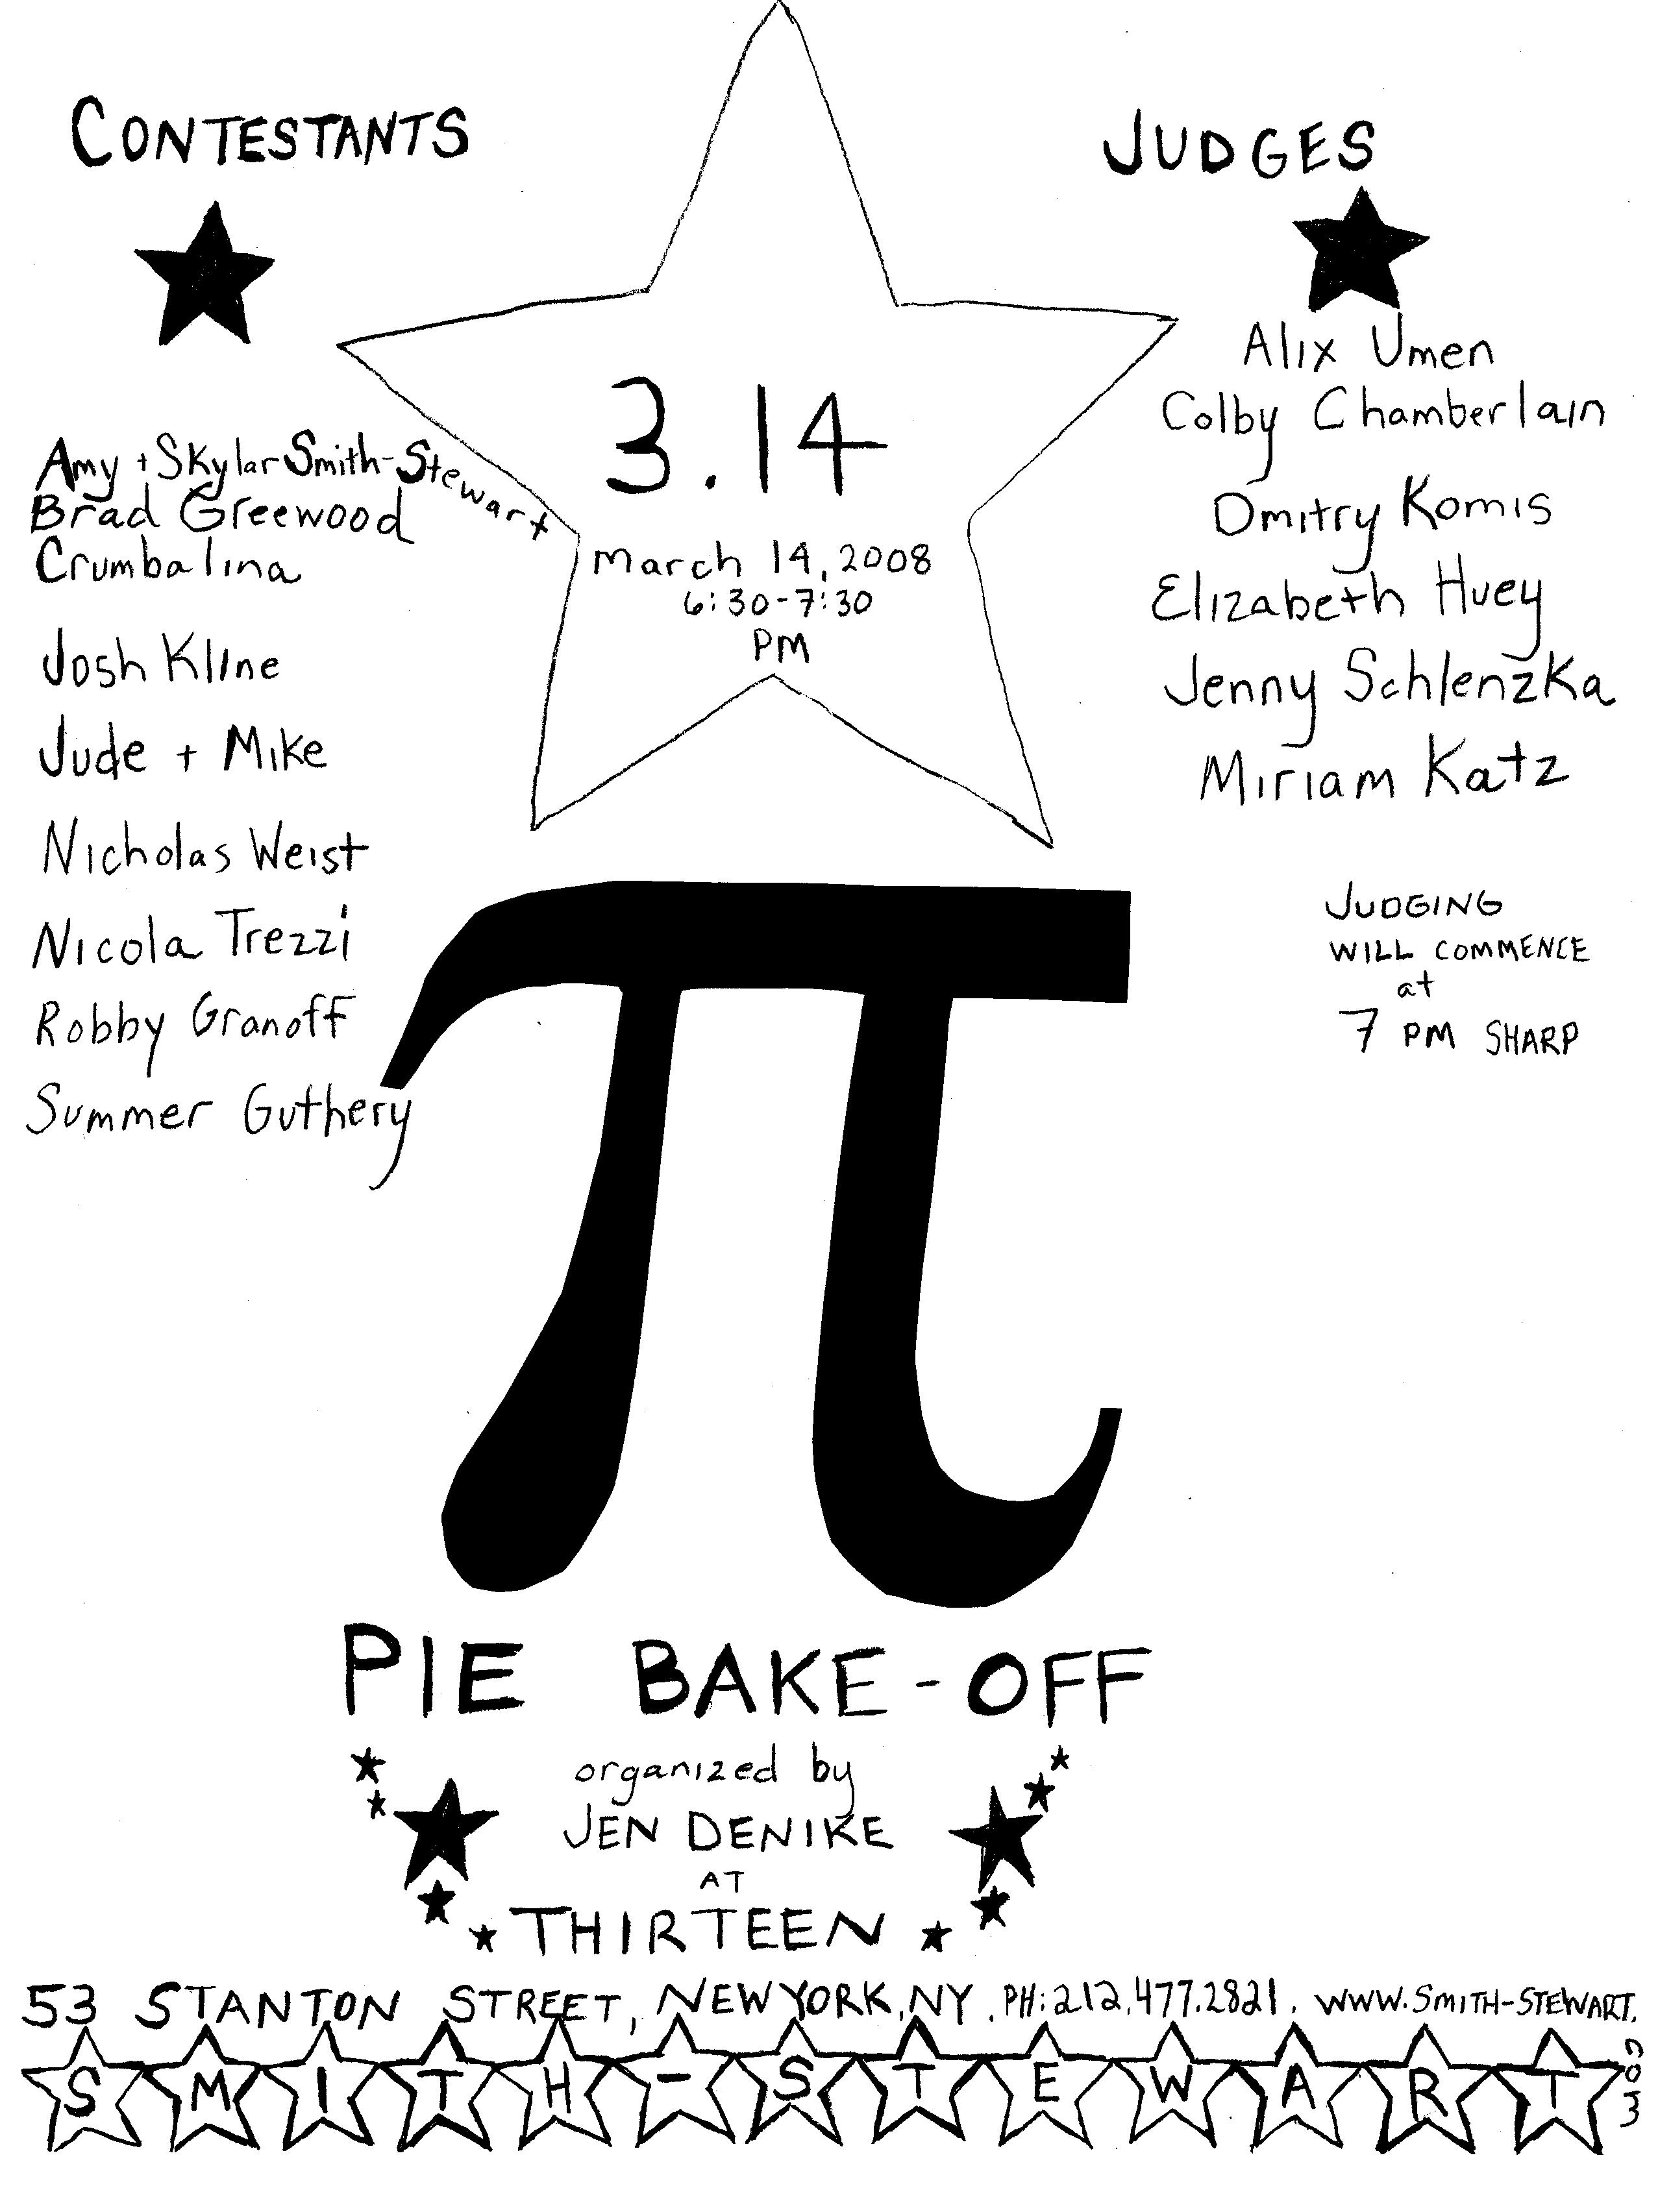 CONTESTANTS
Amy + Skylar Smith-Stewart
Brad Greewood
Crumbalina
Josh Kline
Jude + Mike
Nicholas Weist
Nicola Trezzi
Robby Granoff
Summer Guthery
3.14
March 14, 2008
6:30-7:30
PM
JUDGES
Alix Umen
Colby Chamberlain
Dmitry Komis
Elizabeth Huey
Jenny Schlenzka
Miriam Katz
JUDGING
WILL COMMENCE
at
7 PM SHARP
π
PIE BAKE-OFF
organized by
JEN DENIKE
AT
THIRTEEN
53 STANTON STREET, NEW YORK, NY. PH: 212.477.2821. WWW.SMITH-STEWART.COM
SMITH-STEWART